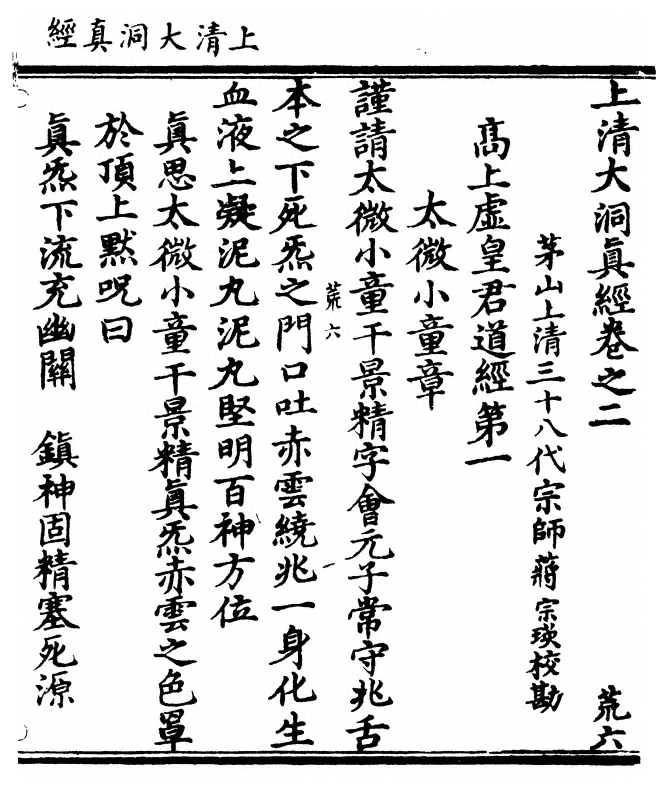 上清大洞真經
上清大洞眞經卷之二 荒六
茅山上清三十八代宗師蔣宗瑛校勘
高上虛皇君道經第一
太微小童章
謹請太微小童干景精字會元子常守兆舌
荒六
本之下死炁之門口吐赤雲繞兆一身化生
血液上凝泥丸泥丸堅明百神方位
眞思太微小童干景精眞炁赤雲之色罩
於頂上默呪曰
眞炁下流充幽關 鎮神固精塞死源